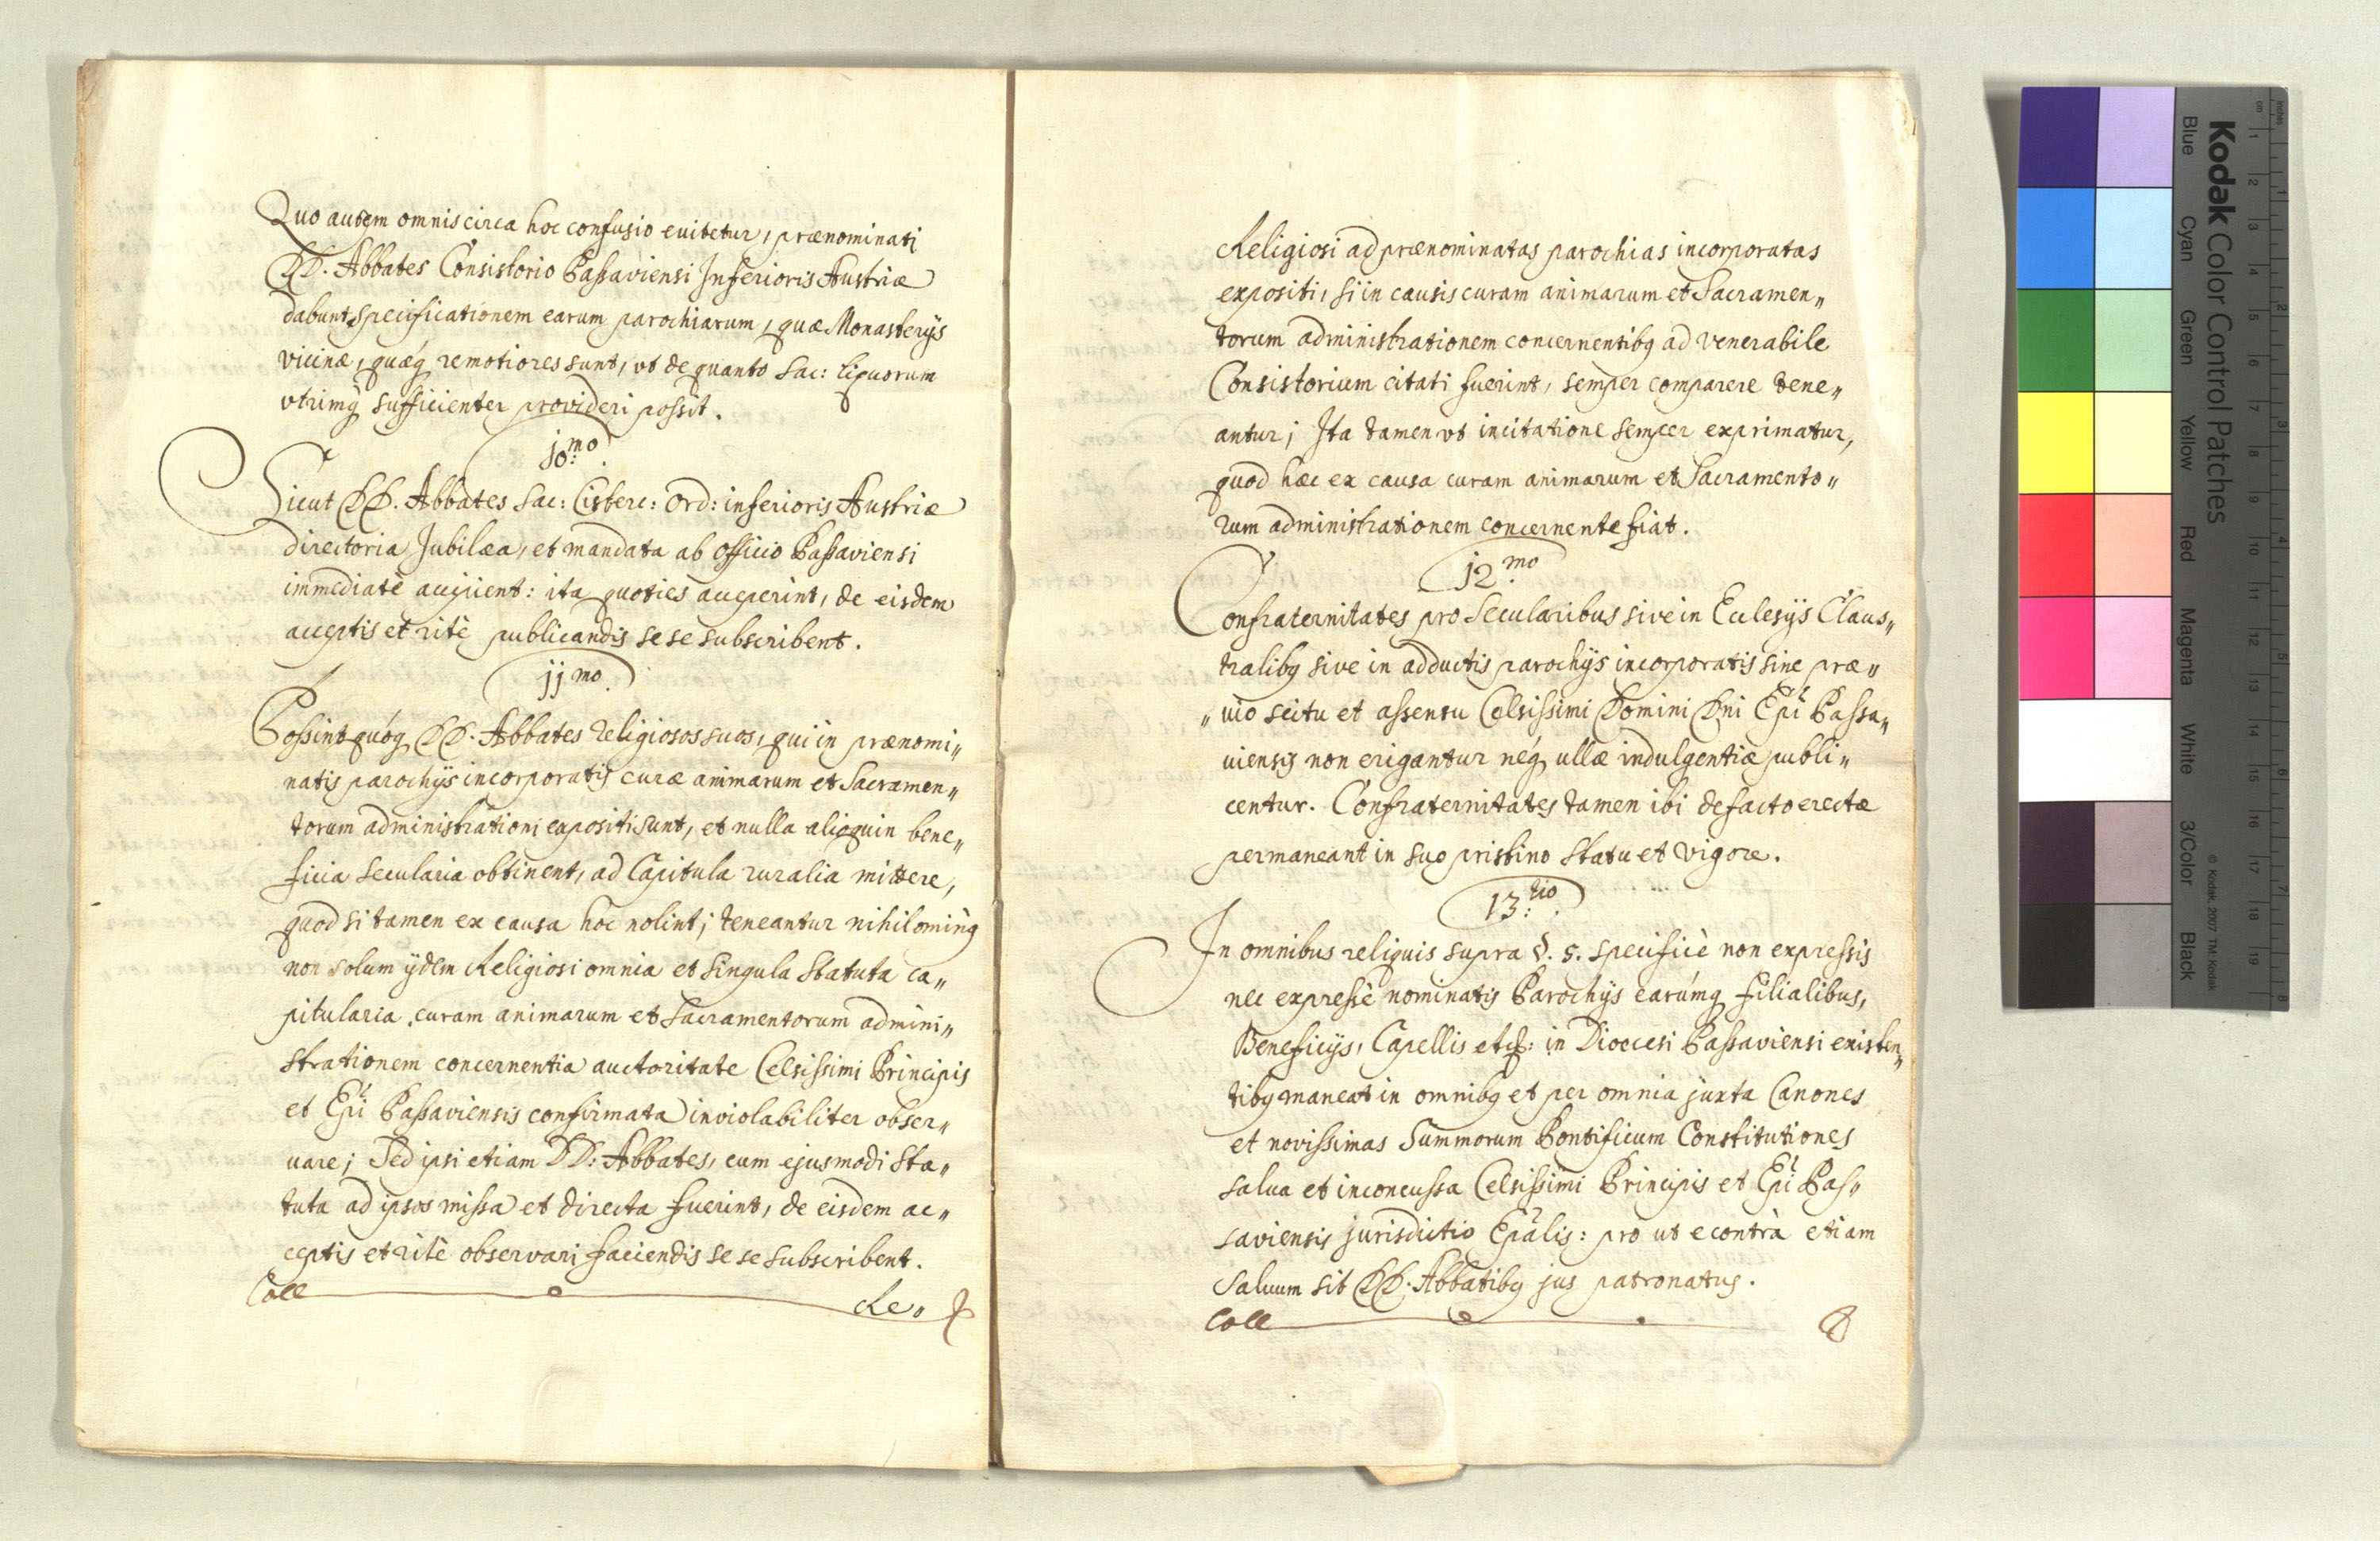 Quo autem omnis circa hoc confusio euitetur, prænominati
DD. Abbates Consistorio Passaviensi Inferioris Austriæ
dabunt specificationem earum parochiarum, quæ Monasterijs
vicinæ, quæq remotiores sunt, vt de quanto sac: liquorum
vtrimq sufficienter provideri possit.
10:mo
Sicut DD. Abbates Sac: Cisterc: Ord: inferioris Austriæ
directoria Jubilæa, et mandata ab officio Passaviensi
immediatè accipient: ita quoties acceperint, de eisdem
acceptis et ritè publicandis sese subscribent.
11mo.
Possint quóq DD. Abbates religiosos suos, qui in prænomi„
natis parochijs incorporatis curæ animarum et Sacramen„
torum administrationi expositi sunt, et nulla alioquin bene„
ficia secularia obtinent, ad Capitula ruralia mittere,
quod si tamen ex causa hoc nolint; teneantur nihilominq
non solum ijdem Religiosi omnia et singula Statuta ca„
pitularia curam animarum et Sacramentorum admini„
strationem concernentia auctoritate Celsissimi Principis
et Epi Passaviensis confirmata inviolabiliter obser„
uare; Sed ipsi etiam DD: Abbates, cum ejusmodi Sta„
tuta ad ipsos missa et directa fuerint, de eisdem ac„
ceptis et ritè observari faciendis se se subscribent.
Coll
Re„
Religiosi ad prænominatas parochias incorporatas
expositi, si in causis curam animarum et Sacramen„
torum administrationem concernentibq ad venerabile
Consistorium citati fuerint, semper comparere tene„
antur; Ita tamen vt in citatione semper exprimatur,
quod hæc ex causa curam animarum et Sacramento„
rum administrationem concernente fiat.
12.mo
Confraternitates pro Secularibus sive in Ecclesijs Claus„
tralibq sive in adductis parochijs incorporatis sine præ„
„uio scitu et assensu Celsissimi Domini Dni Epi Passa„
uiensis non erigantur néq ullæ indulgentiæ publi„
centur. Confraternitates tamen ibi de facto erectæ
permaneant in suo pristino statu et vigore.
13:tio.
In omnibus reliquis supra §. 5. specificè non expressis
nec expressè nominatis Parochijs earúmq filialibus,
Beneficijs, Capellis etc: in Dioecesi Passaviensi existen„
tibq maneat in omnibq et per omnia juxta Canones
et novissimas Summorum Pontificum Constitutiones
salua et inconcussa Celsissimi Principis et Epi Pas„
saviensis jurisdictio Epalis: pro ut econtrà etiam
Saluum sit DD. Abbatibq jus patronatus.
Coll
Kodak Color Control Patches
Blue
Cyan
Green
Yellow
Red
Magenta
White
3/Color
Black
© Kodak, 2007 TM: Kodak
cm 1 2 3 4 5 6 7 8 9 10 11 12 13 14 15 16 17 18 19
inches 1 2 3 4 5 6 7 8